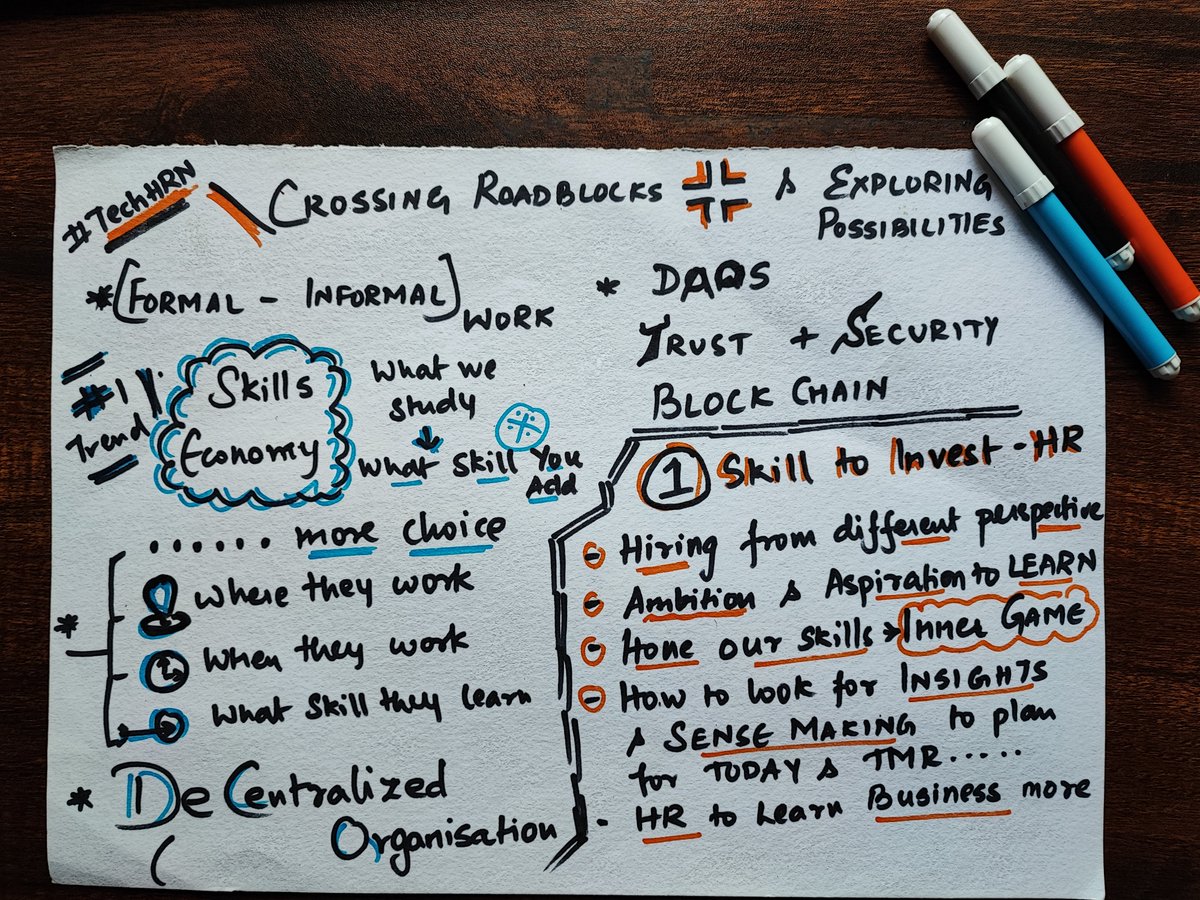 #TechHRN
CROSSING ROADBLOCKS & EXPLORING
POSSIBILITIES
* [FORMAL - INFORMAL] WORK
#1
Trend
Skills
Economy
What we
study
What skill you
Add
...... more choice
* where they work
when they work
what skill they learn
* DeCentralized
Organisation
(
* DAOS
TRUST + SECURITY
BLOCK CHAIN
1 Skill to Invest - HR
- Hiring from different perspective
- Ambition & Aspiration to LEARN
- Hone our skills → Inner GAME
- How to look for INSIGHTS
& SENSE MAKING to plan
for TODAY & TMR.....
- HR to Learn Business more